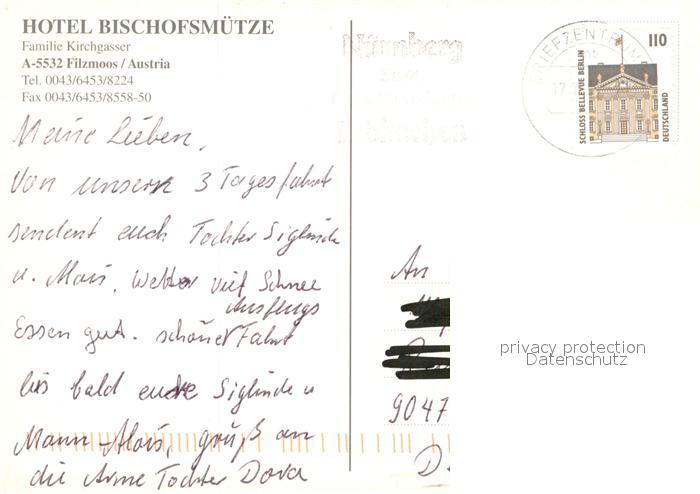 HOTEL BISCHOFSMÜTZE
Familie Kirchgasser
A-5532 Filzmoos / Austria
Tel. 0043/6453/8224
Fax 0043/6453/8558-50
Meine Lieben,
Von unsern 3 Tagesfahrt
sendent euch Tochter Siglinde
u. Alois. Wetter viel Schnee
Ausflugs
Essen gut. schöner Fahrt
bis bald eure Siglinde u
Mann-Alois, grüß an
die Arme Tochter Dora
Nürnberg
München
BRIEFZENTRUM
17
110
SCHLOSS BELLEVUE BERLIN
DEUTSCHLAND
An
9047
D
privacy protection
Datenschutz